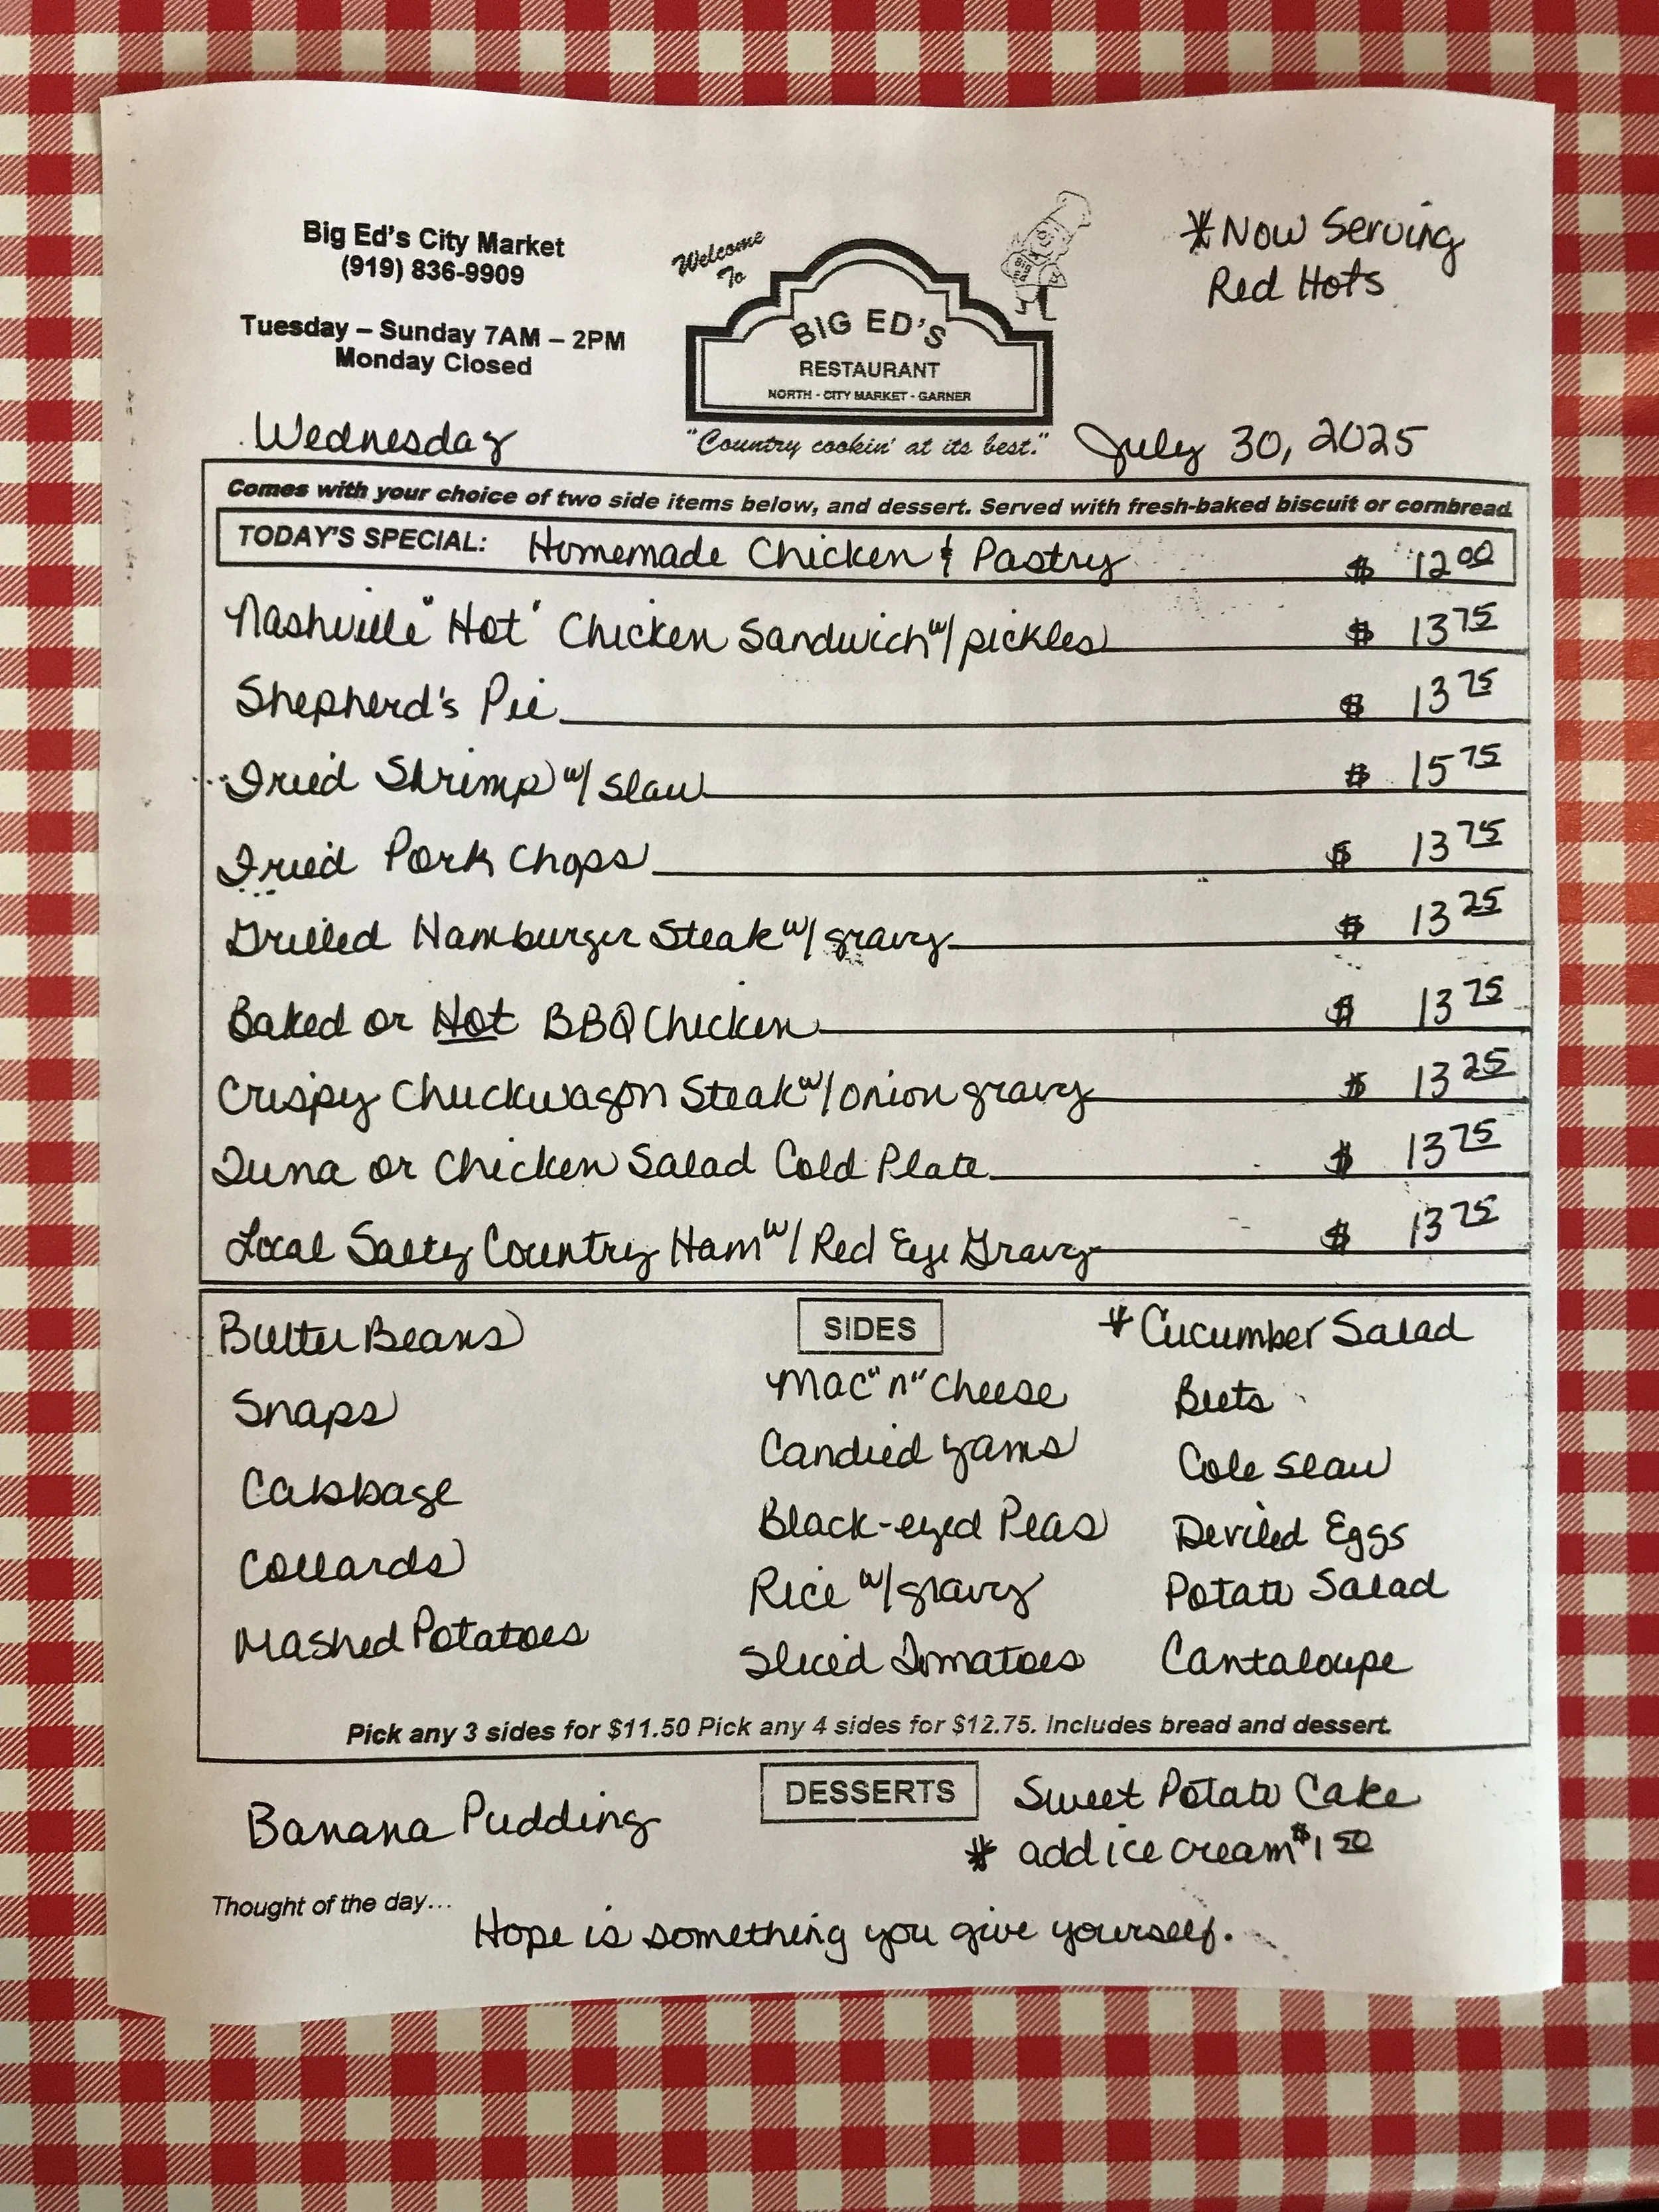 Big Ed's City Market
(919) 836-9909
Tuesday – Sunday 7AM – 2PM
Monday Closed
Welcome
To
BIG ED'S
RESTAURANT
NORTH - CITY MARKET - GARNER
"Country cookin' at its best."
* Now Serving
Red Hots
Wednesday
July 30, 2025
Comes with your choice of two side items below, and dessert. Served with fresh-baked biscuit or cornbread.
TODAY'S SPECIAL: Homemade Chicken & Pastry $ 12 00
Nashville "Hot" Chicken Sandwich w/ pickles $ 13 75
Shepherd's Pie $ 13 75
Fried Shrimp w/ Slaw $ 15 75
Fried Pork Chops $ 13 75
Grilled Hamburger Steak w/ gravy $ 13 25
Baked or Hot BBQ Chicken $ 13 75
Crispy Chuckwagon Steak w/ onion gravy $ 13 25
Tuna or Chicken Salad Cold Plate $ 13 75
Local Salty Country Ham w/ Red Eye Gravy $ 13 75
SIDES
Butter Beans
Snaps
Cabbage
Collards
Mashed Potatoes
Mac "n" Cheese
Candied Yams
Black-eyed Peas
Rice w/ gravy
Sliced Tomatoes
* Cucumber Salad
Beets
Cole Slaw
Deviled Eggs
Potato Salad
Cantaloupe
Pick any 3 sides for $11.50 Pick any 4 sides for $12.75. Includes bread and dessert.
DESSERTS
Banana Pudding
Sweet Potato Cake
* add ice cream $1 50
Thought of the day...
Hope is something you give yourself.